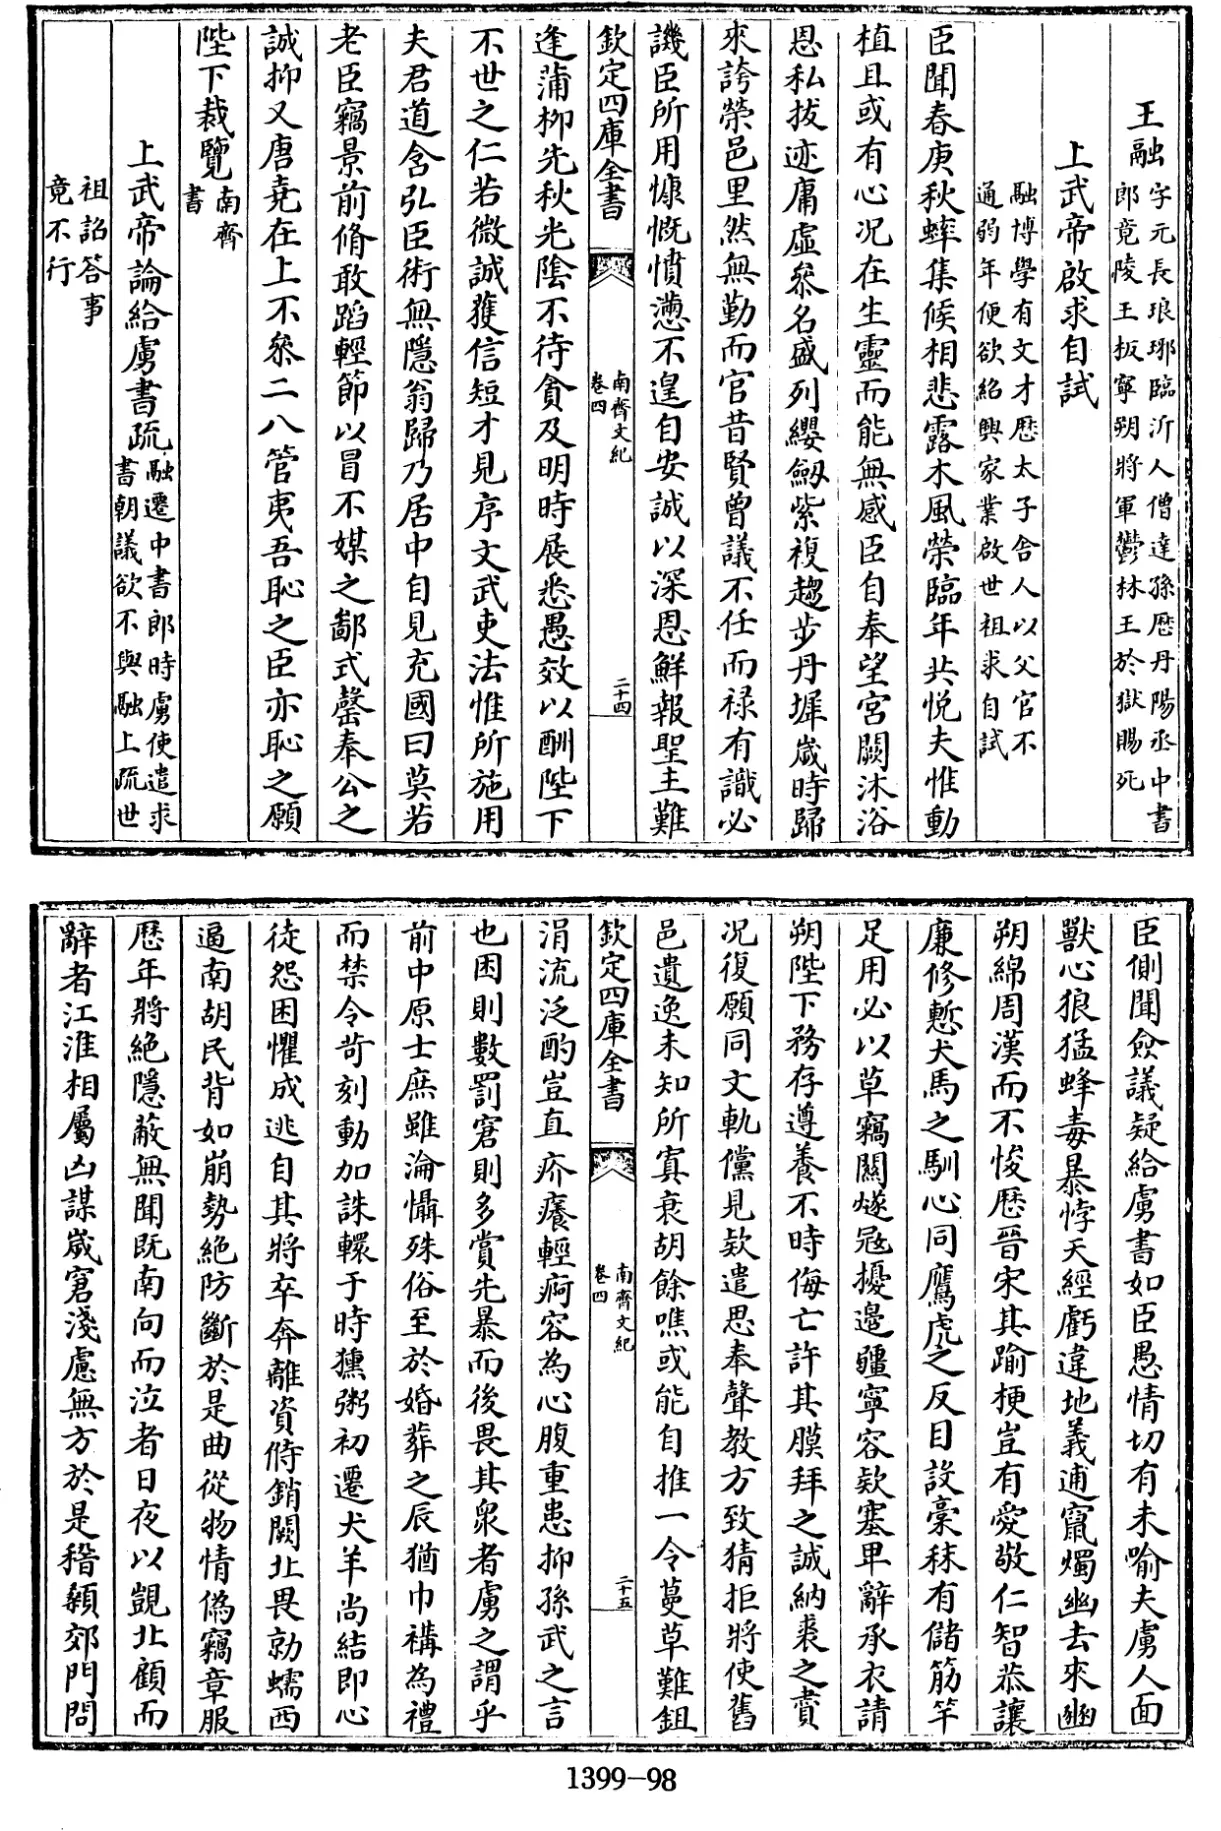 王融
字元長琅琊臨沂人僧達孫歴丹陽丞中書
郎竟陵王板寧朔將軍鬱林王於獄賜死
上武帝啟求自試
融博學有文才歴太子舍人以父官不
通弱年便欲紹興家業啟世祖求自試
臣聞春庚秋蟀集候相悲露木風榮臨年共悦夫惟動
植且或有心况在生靈而能無感臣自奉望宮闕沐浴
恩私拔迹庸虛叅名盛列纓劒紫複趨步丹墀歲時歸
來誇榮邑里然無勤而官昔賢曾議不任而禄有識必
譏臣所用慷慨憤懣不遑自安誠以深恩鮮報聖主難
欽定四庫全書
南齊文紀
卷四
二十四
逢蒲柳先秋光陰不待貪及明時展悉愚效以酬陛下
不世之仁若微誠獲信短才見序文武吏法惟所施用
夫君道含弘臣術無隱翁歸乃居中自見充國曰莫若
老臣竊景前脩敢蹈輕節以冒不媒之鄙式罄奉公之
誠抑又唐堯在上不叅二八管夷吾恥之臣亦恥之願
陛下裁覽
南齊
書
上武帝論給虜書疏
融遷中書郎時虜使遣求
書朝議欲不與融上疏世
祖詔答事
竟不行
臣側聞僉議疑給虜書如臣愚情切有未喻夫虜人面
獸心狼猛蜂毒暴悖天經虧違地義逋竄燭幽去來豳
朔綿周漢而不悛歴晉宋其踰梗豈有愛敬仁智恭讓
廉修慙犬馬之馴心同鷹虎之反目設稾秣有儲筋竿
足用必以草竊關燧冦擾邉疆寧容欵塞卑辭承衣請
朔陛下務存遵養不時侮亡許其膜拜之誠納裘之賮
况復願同文軌儻見欵遣思奉聲教方致猜拒將使舊
邑遺逸未知所寘衰胡餘噍或能自推一令蔓草難鉏
欽定四庫全書
南齊文紀
卷四
二十五
涓流泛酌豈直疥癢輕痾容為心腹重患抑孫武之言
也困則數罰窘則多賞先暴而後畏其衆者虜之謂乎
前中原士庶雖淪懾殊俗至於婚葬之辰猶巾褠為禮
而禁令苛刻動加誅轘于時獯粥初遷犬羊尚結即心
徒怨困懼成逃自其將卒奔離資偫銷闕北畏勍蠕西
逼南胡民背如崩勢絶防斷於是曲從物情偽竊章服
歴年將絶隱蔽無聞既南向而泣者日夜以覬北顧而
辭者江淮相屬凶謀歲窘淺慮無方於是稽顙郊門問
1399-98